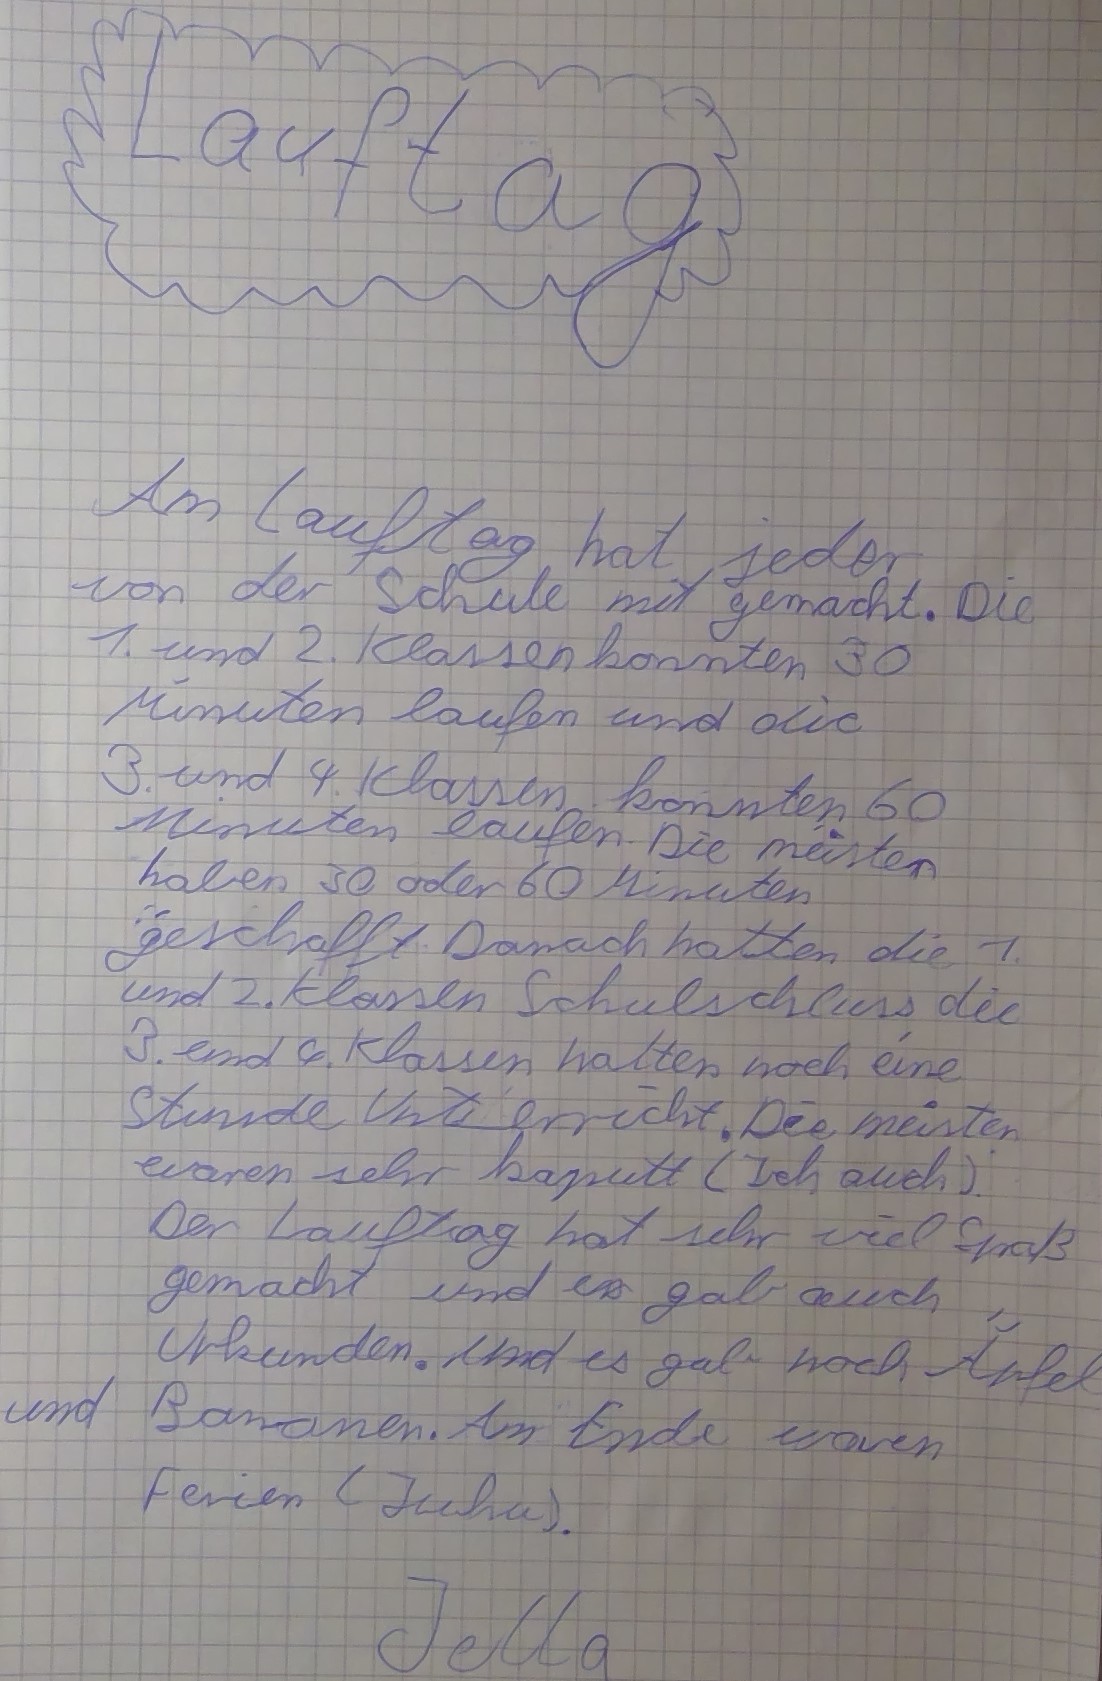 Lauftag
Am Lauftag hat jeder
von der Schule mit gemacht. Die
1. und 2. Klassen konnten 30
Minuten laufen und die
3. und 4. Klassen konnten 60
Minuten laufen. Die meisten
haben 30 oder 60 Minuten
geschafft. Danach hatten die 1.
und 2. Klassen Schulschluss die
3. und 4. Klassen hatten noch eine
Stunde Unterricht. Die meisten
waren sehr kaputt (Ich auch).
Der Lauftag hat sehr viel Spaß
gemacht und es gab auch
Urkunden. Und es gab noch Äpfel
und Bananen. Am Ende waren
Ferien (Juhu).
Jella